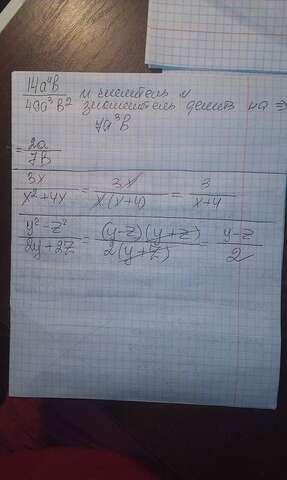 14a⁴b / 49a³b² и числитель и знаменатель делить на ⇒
7a³b
= 2a / 7b
3x / x²+4x = 3x / x(x+4) = 3 / x+4
y²-z² / 2y+2z = (y-z)(y+z) / 2(y+z) = y-z / 2